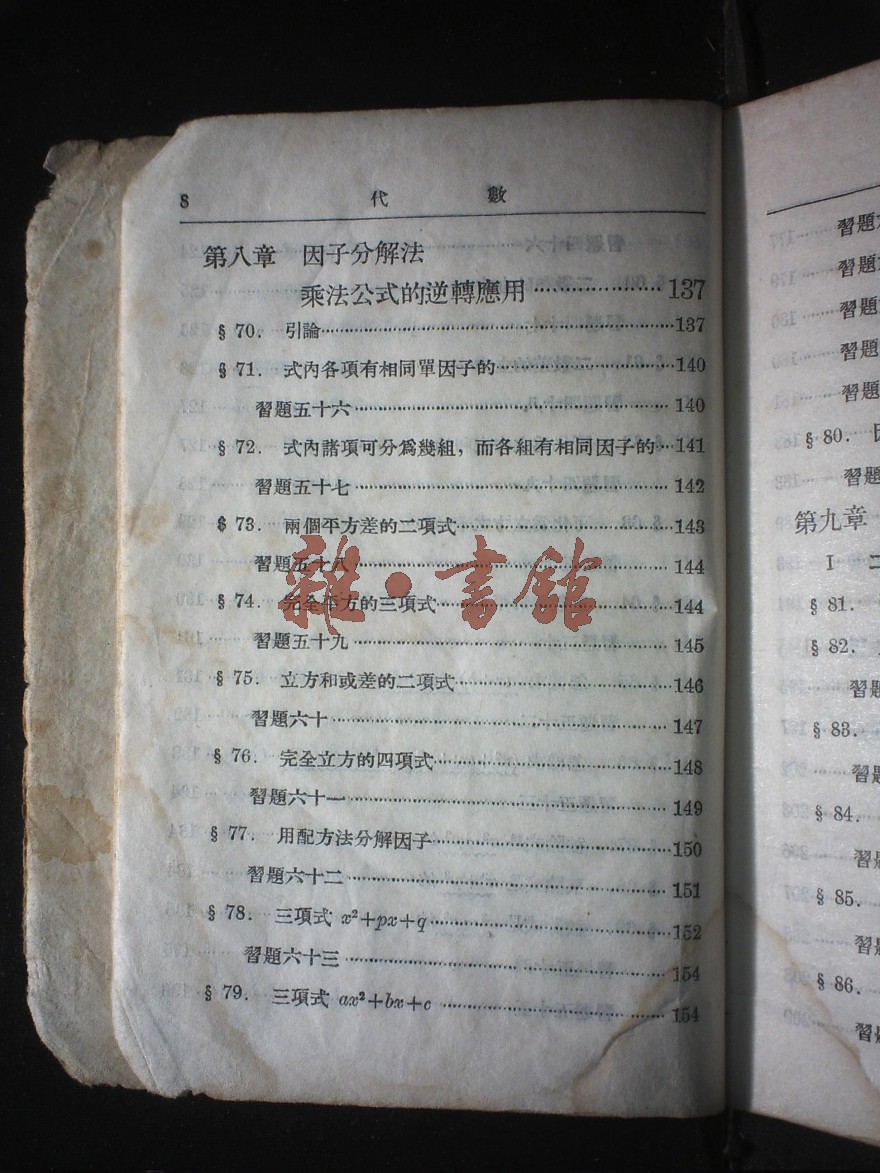 8 代 數
第八章 因子分解法
乘法公式的逆轉應用………………137
§ 70. 引論………………137
§ 71. 式內各項有相同單因子的………………140
習題五十六………………140
§ 72. 式內諸項可分爲幾組，而各組有相同因子的…141
習題五十七………………142
§ 73. 兩個平方差的二項式………………143
習題五十八………………144
§ 74. 完全平方的三項式………………144
習題五十九………………145
§ 75. 立方和或差的二項式………………146
習題六十………………147
§ 76. 完全立方的四項式………………148
習題六十一………………149
§ 77. 用配方法分解因子………………150
習題六十二………………151
§ 78. 三項式 x²+px+q………………152
習題六十三………………154
§ 79. 三項式 ax²+bx+c………………154
雜·書館
習題
習題
習題
習題
習題
§ 80.
習題
第九章
I 二
§ 81.
§ 82.
習題
§ 83.
習題
§ 84.
習題
§ 85.
習題
§ 86.
習題